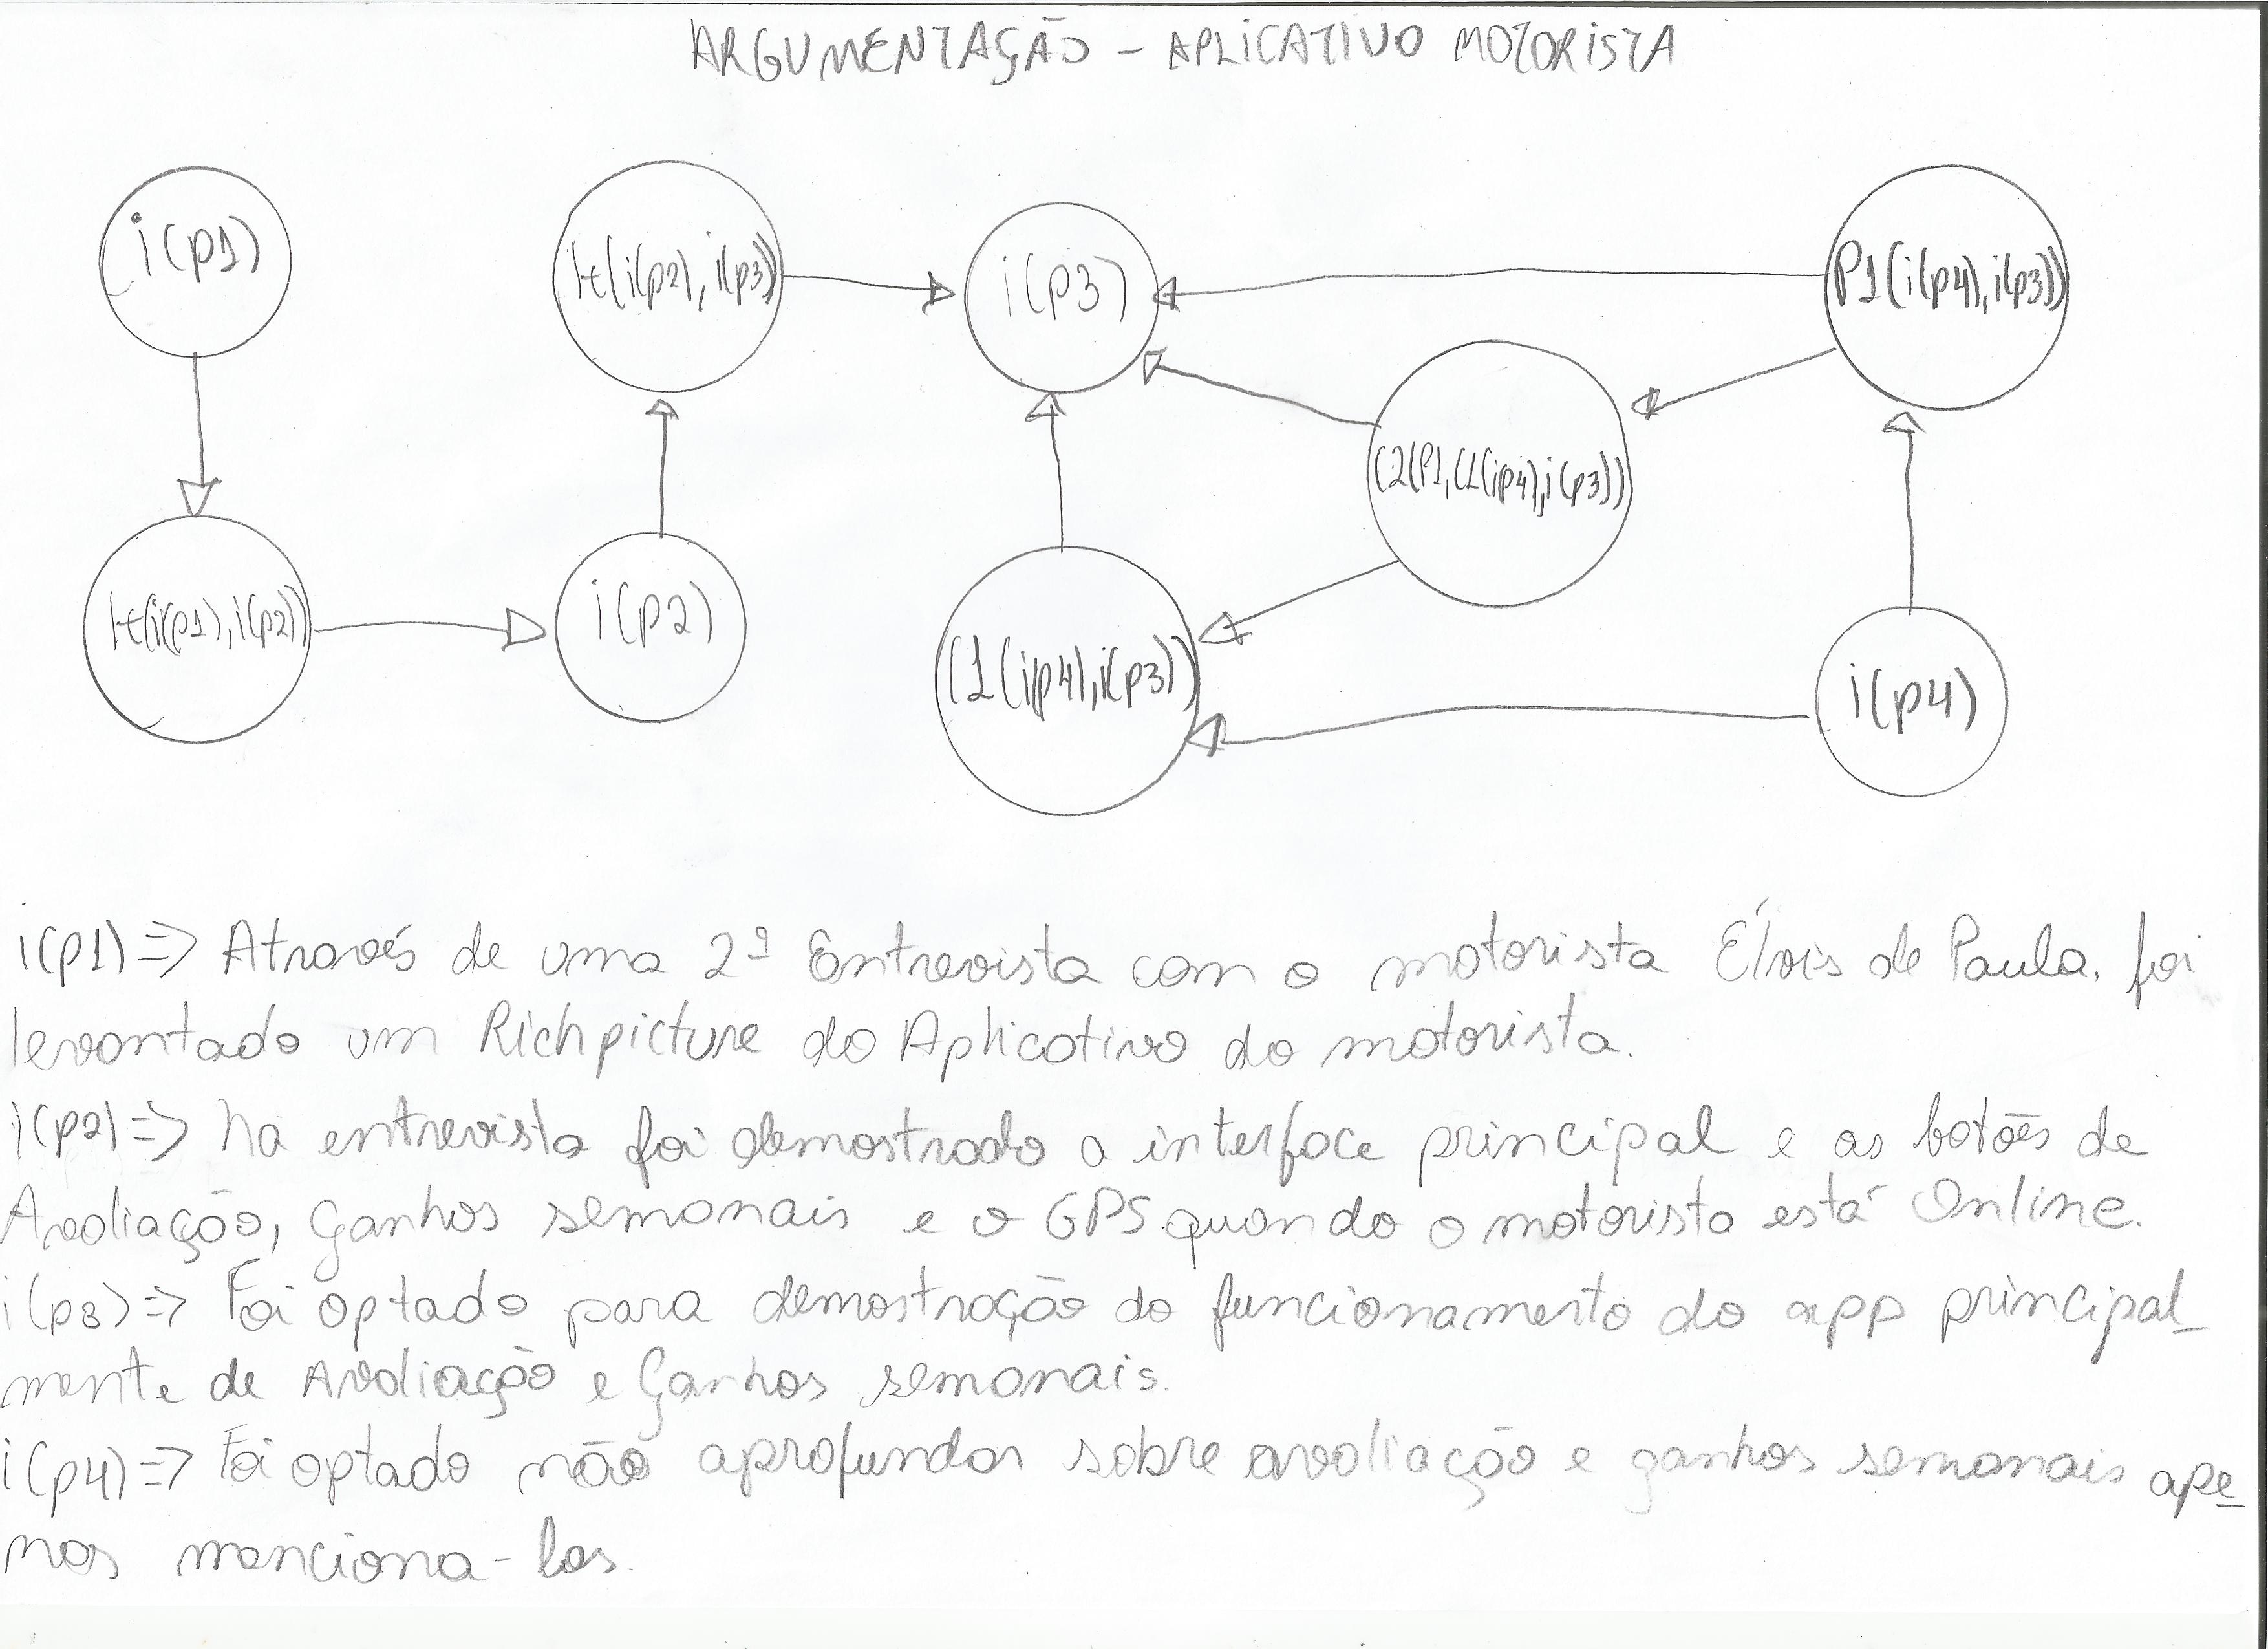 ARGUMENTAÇÃO - APLICATIVO MOTORISTA
i(p1)
H(i(p2), i(p3))
i(p3)
P1(i(p4), i(p3))
C2(P1, C1(i(p4), i(p3))
H(i(p1), i(p2))
i(p2)
C1(i(p4), i(p3))
i(p4)
i(p1) => Através de uma 2ª Entrevista com o motorista Élvis de Paula, foi
levantado um Richpicture do Aplicativo do motorista.
i(p2) => Na entrevista foi demostrado a interface principal e os botões de
Avaliação, Ganhos semanais e o GPS quando o motorista está Online.
i(p3) => Foi optado para demostração do funcionamento do app principal_
mente de Avaliação e Ganhos semanais.
i(p4) => Foi optado não aprofundar sobre avaliação e ganhos semanais ape_
nas menciona-los.